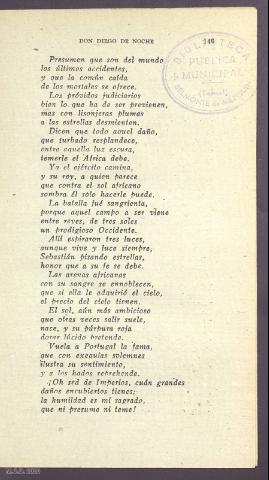 DON DIEGO DE NOCHE
149
BIBLIOTECA
PUBLICA
MUNICIPAL
(Teruel)
BELMONTE DE
Presumen que son del mundo
los últimos accidentes,
y que la común caída
de los mortales se ofrece.
Los próvidos judiciarios
bien lo que ha de ser previenen,
mas con lisonjeras plumas
a las estrellas desmienten.
Dicen que todo aquel daño,
que turbado resplandece,
entre aquella luz escura,
temerle el Africa debe.
Ya el ejército camina,
y su rey, a quien parece
que contra el sol africano
sombra él sólo hacerle puede.
La batalla fué sangrienta,
porque aquel campo a ser viene
entre reyes, de tres soles
un prodigioso Occidente.
Allí espiraron tres luces,
aunque vive y luce siempre,
Sebastián pisando estrellas,
honor que a su fe se debe.
Las arenas africanas
con su sangre se ennoblecen,
que si ella le adquirió el cielo,
el precio del cielo tienen.
El sol, aún más ambicioso
que otras veces salir suele,
nace, y su púrpura roja
dorar lúcido pretende.
Vuela a Portugal la fama,
que con exequias solemnes
ilustra su sentimiento,
y a los hados reprehende.
¡Oh sed de Imperios, cuán grandes
daños encubiertos tienes;
la humildad es mi sagrado,
que ni presume ni teme!